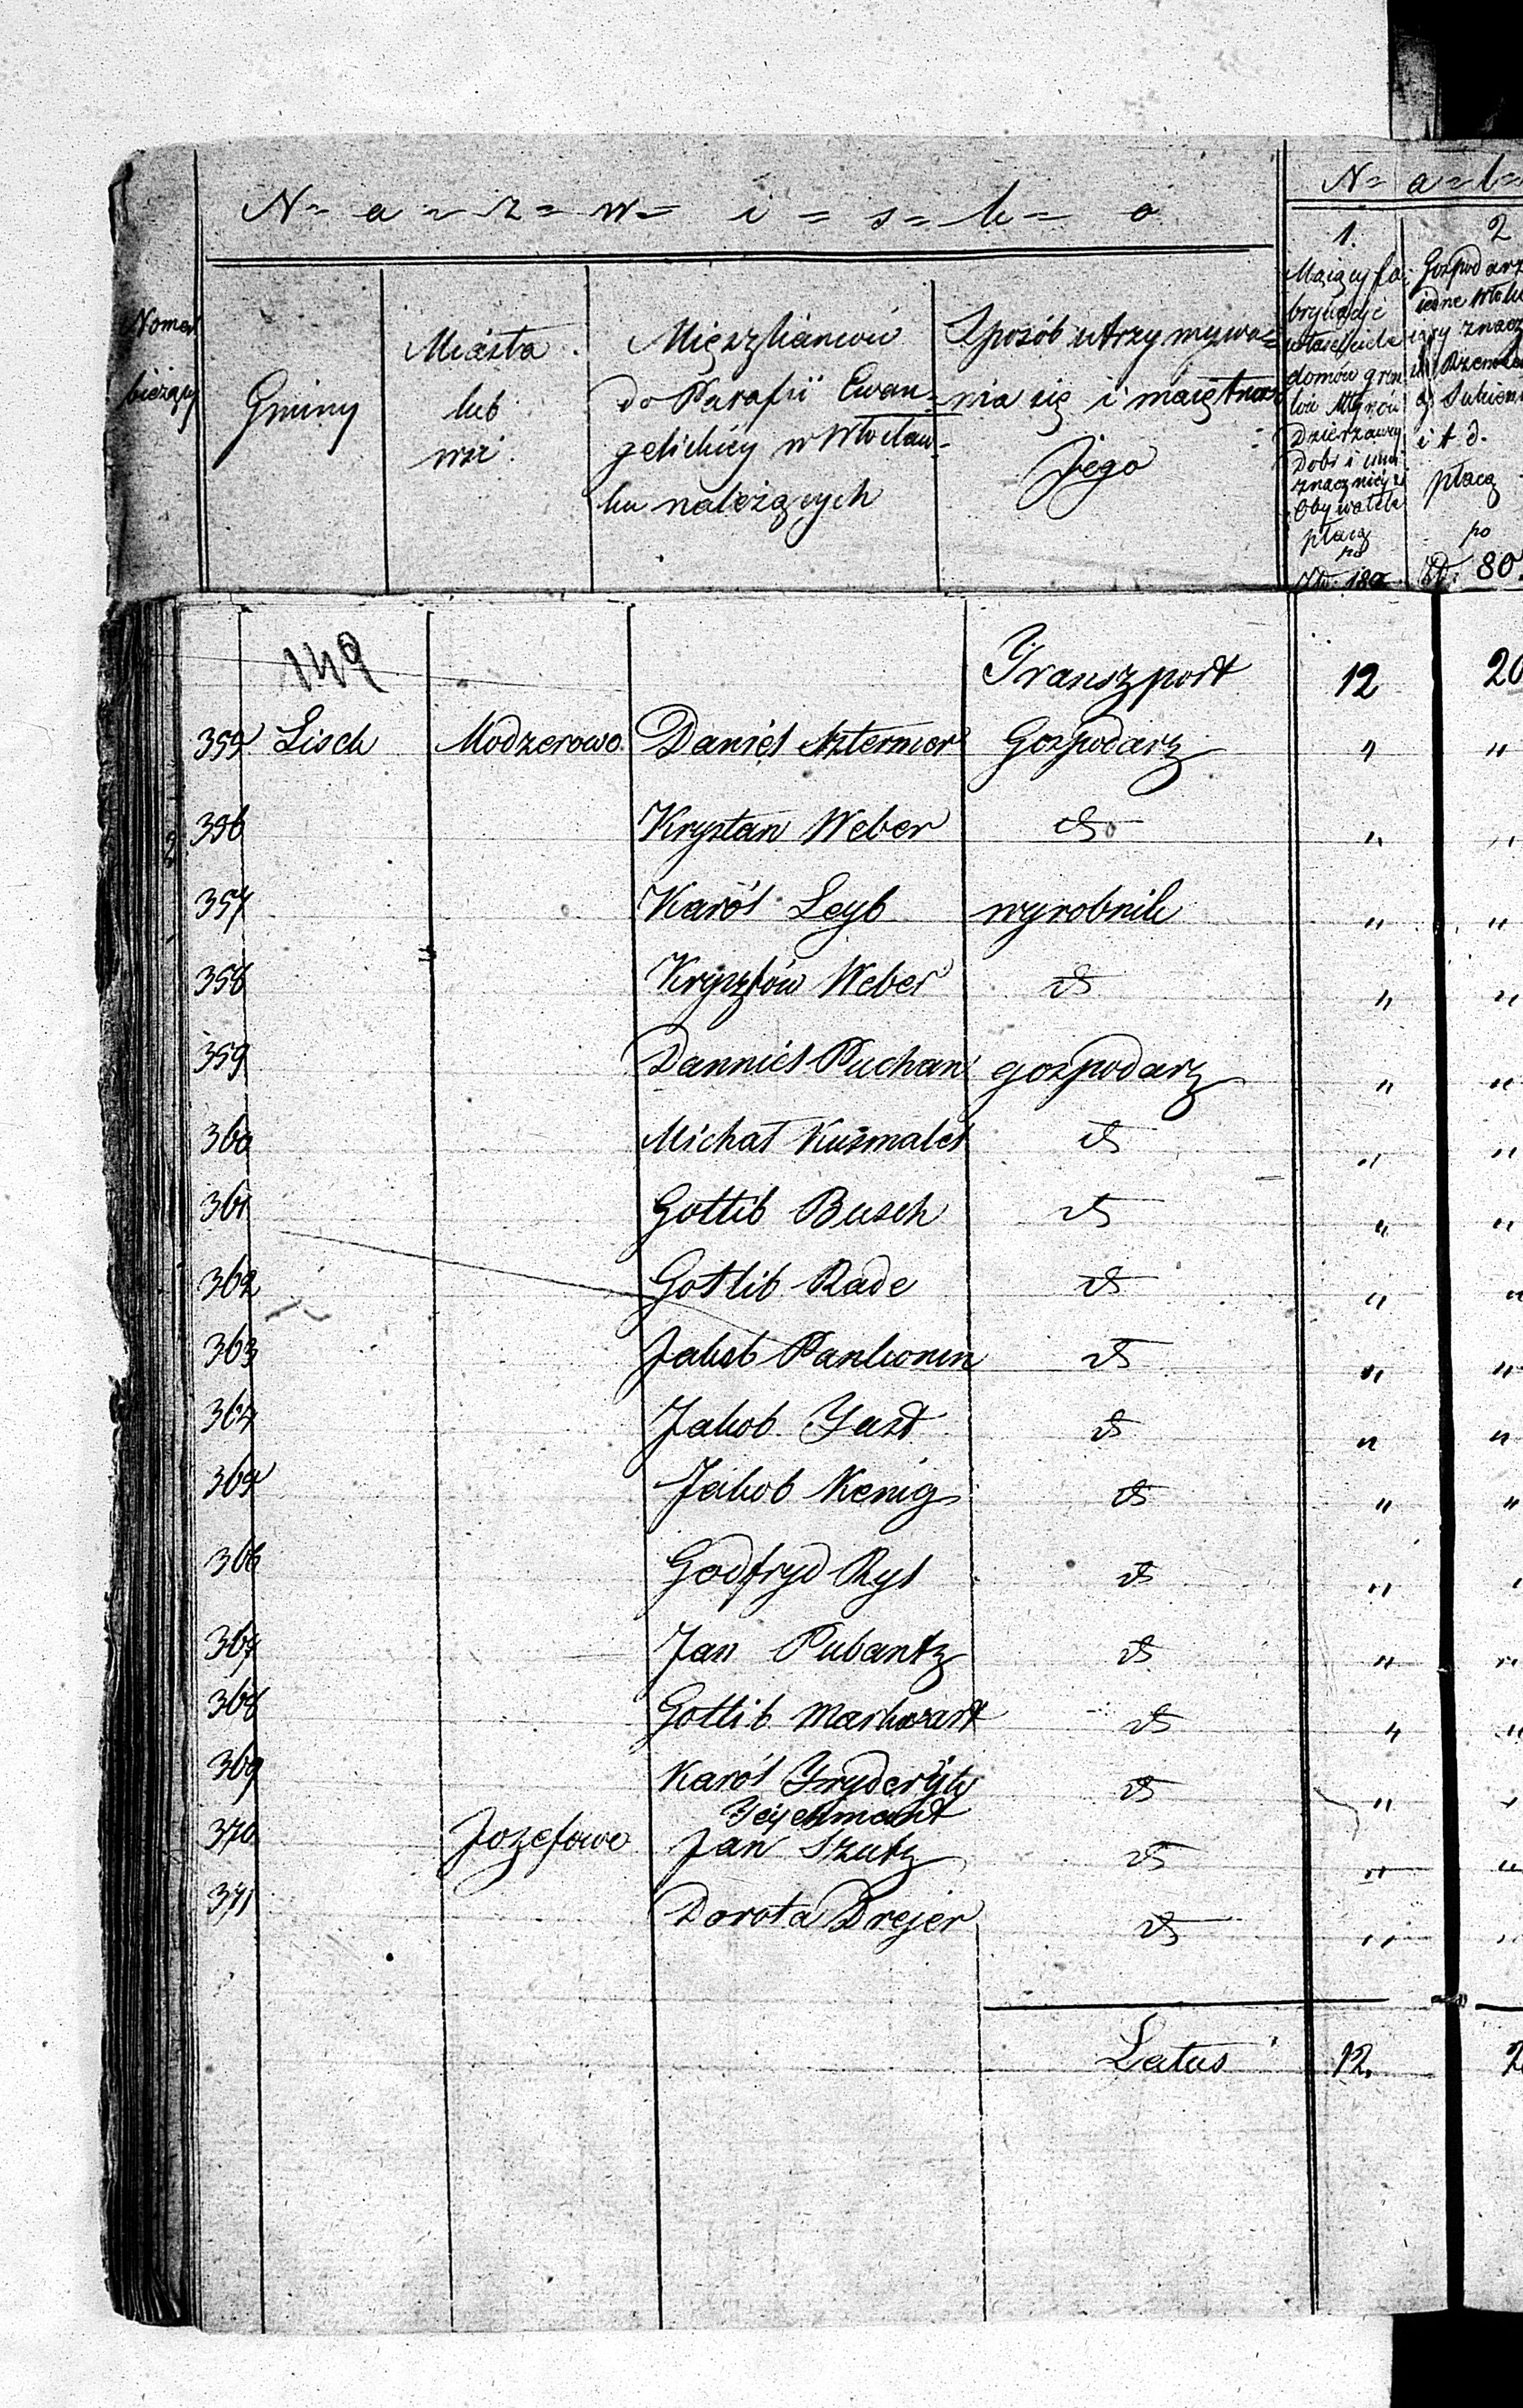 N= a= z= w= i= s= k= o
N= a= l=
Nomer
bieżący
Gminy
Miasta
lub
wsi
Mięszkańców
do Parafii Ewan-
gelickiey w Włocław-
ku należących
Sposób utrzymywa=
nia się i maiętność
Jego
1.
Maiący fa-
domów
Młynów
Dzierzawcy
Dobr i inni
znacznieysi
Obywatele
płacą
po
Zł. 180
2
Gospodarz
iedne Włók
i t. d.
płacą
po
Zł. 80.
149
Transzport 12 20
355 Lisek Modzerowo Daniel Szterner Gospodarz " "
356 Krystan Weber dto " "
357 Karól Leyb wyrobnik " "
358 Krysztów Weber dt " "
359 Danniel Puchan gospodarz " "
360 Michał Kuśmalet dt " "
361 Gottlib Busch dt " "
362 Gotlib Rade dt " "
363 Jakob Pankonin dt " "
364 Jakob Jast dt " "
365 Jakob Kenig dt " "
366 Godfryd Rys dt " "
367 Jan Pubantz dt " "
368 Gottlib Markwart dt " "
369 Karól Fryderyk dt " "
Jeschmandt
370 Jozefowo Jan Szutz dt " "
371 Dorota Drejer dt " "
Latus 12. 2